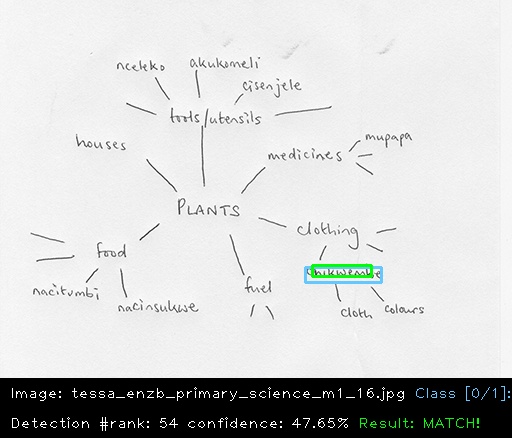 nceleko
akukomeli
cisenjele
tools/utensils
houses
medicines
mupapa
PLANTS
clothing
food
chikwembe
nacitumbi
nacinsukwe
fuel
cloth
colours
Image: tessa_enzb_primary_science_m1_16.jpg Class [0/1]:
Detection #rank: 54 confidence: 47.65% Result: MATCH!